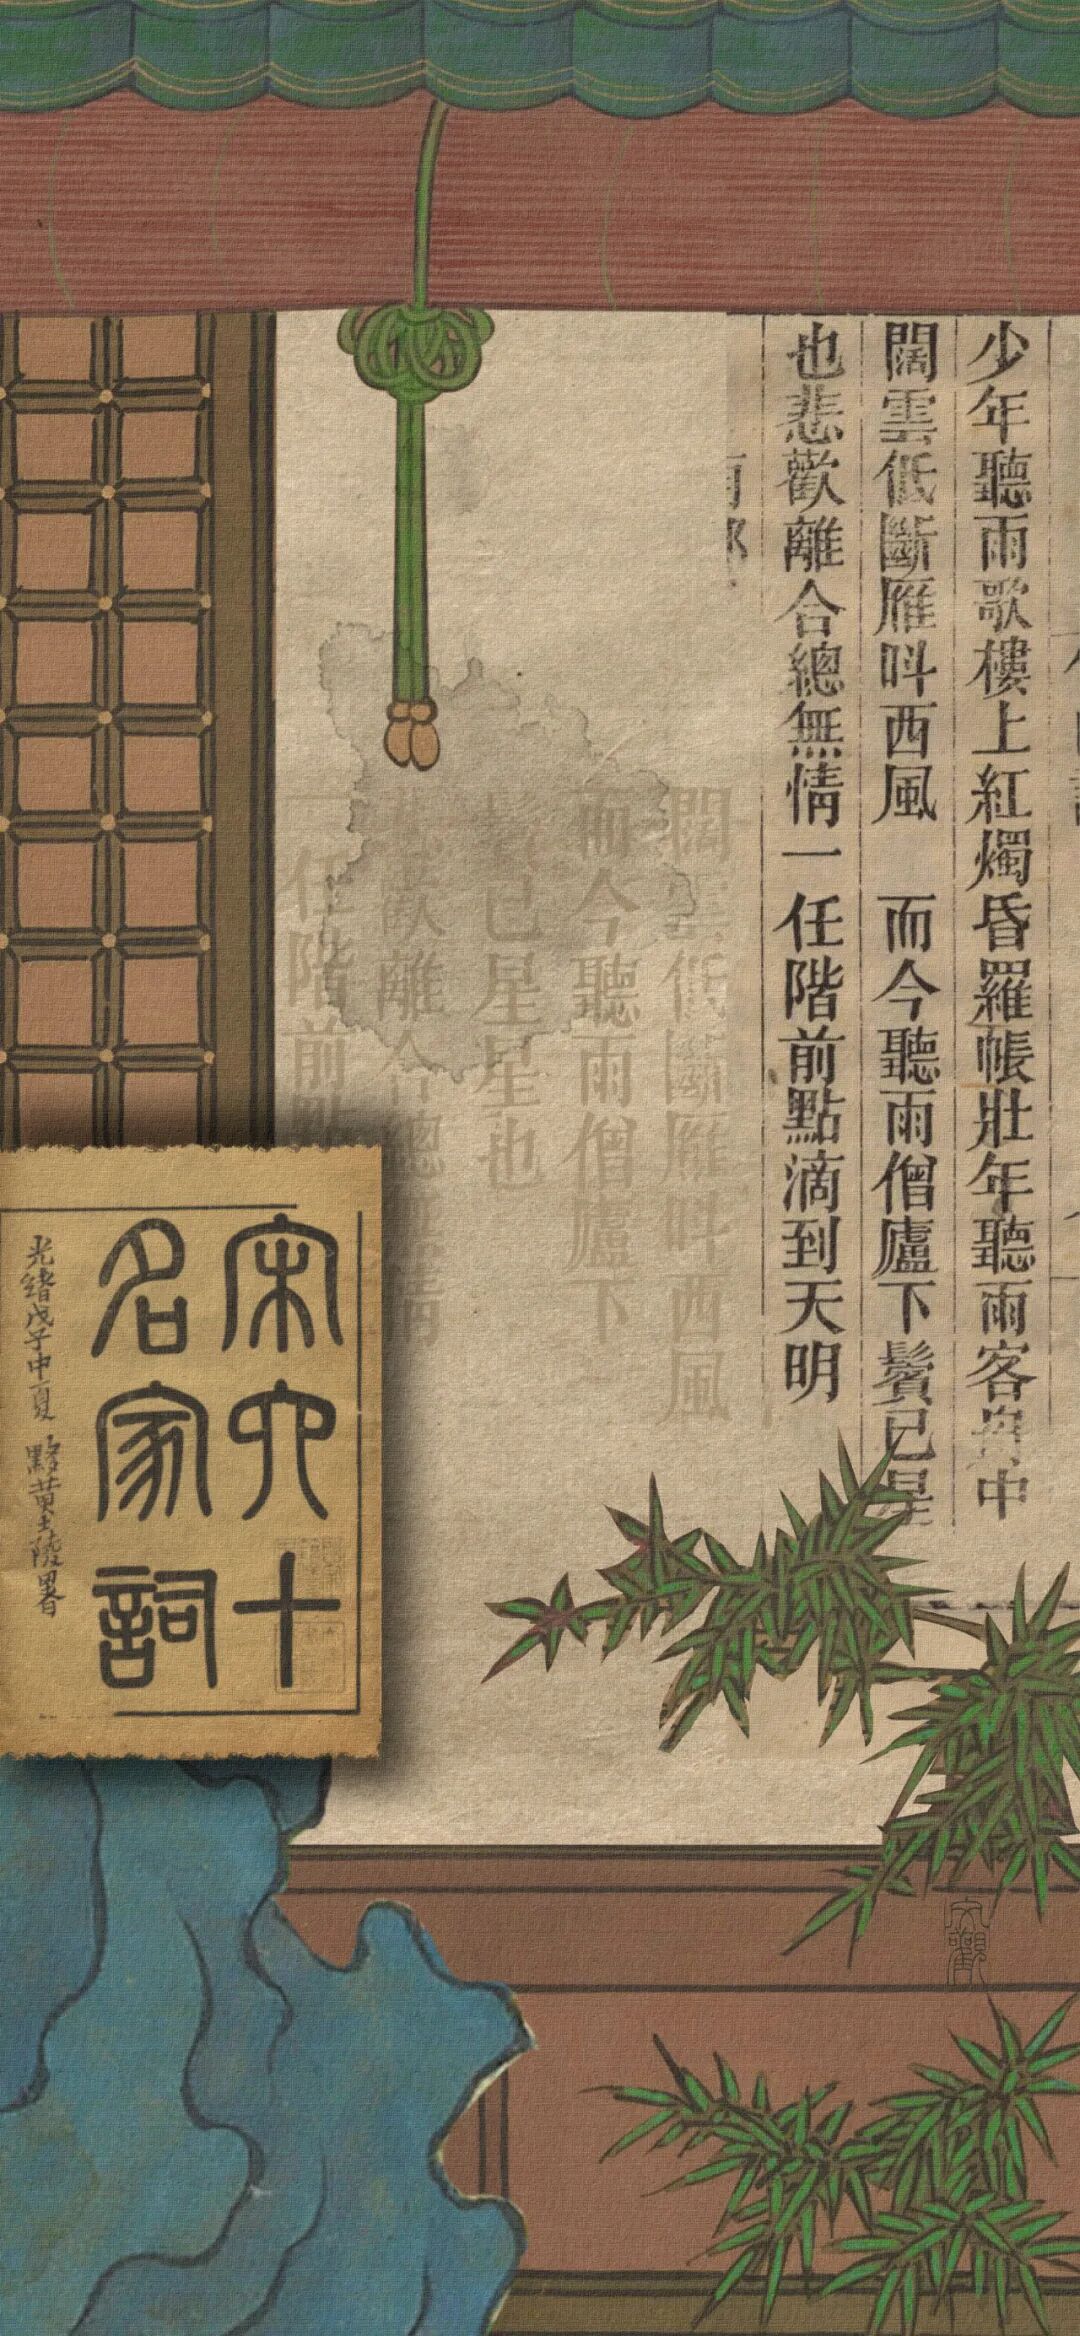 少年聽雨歌樓上紅燭昏羅帳壯年聽雨客舟中
闊雲低斷雁呌西風　而今聽雨僧廬下鬢已星
也悲歡離合總無情一任階前點滴到天明
闊雲低斷雁呌西風
而今聽雨僧廬下
鬢已星星也
悲歡離合總無情
一任階前點
宋六十
名家詞
光緒戊子中夏 黟黄士陵署